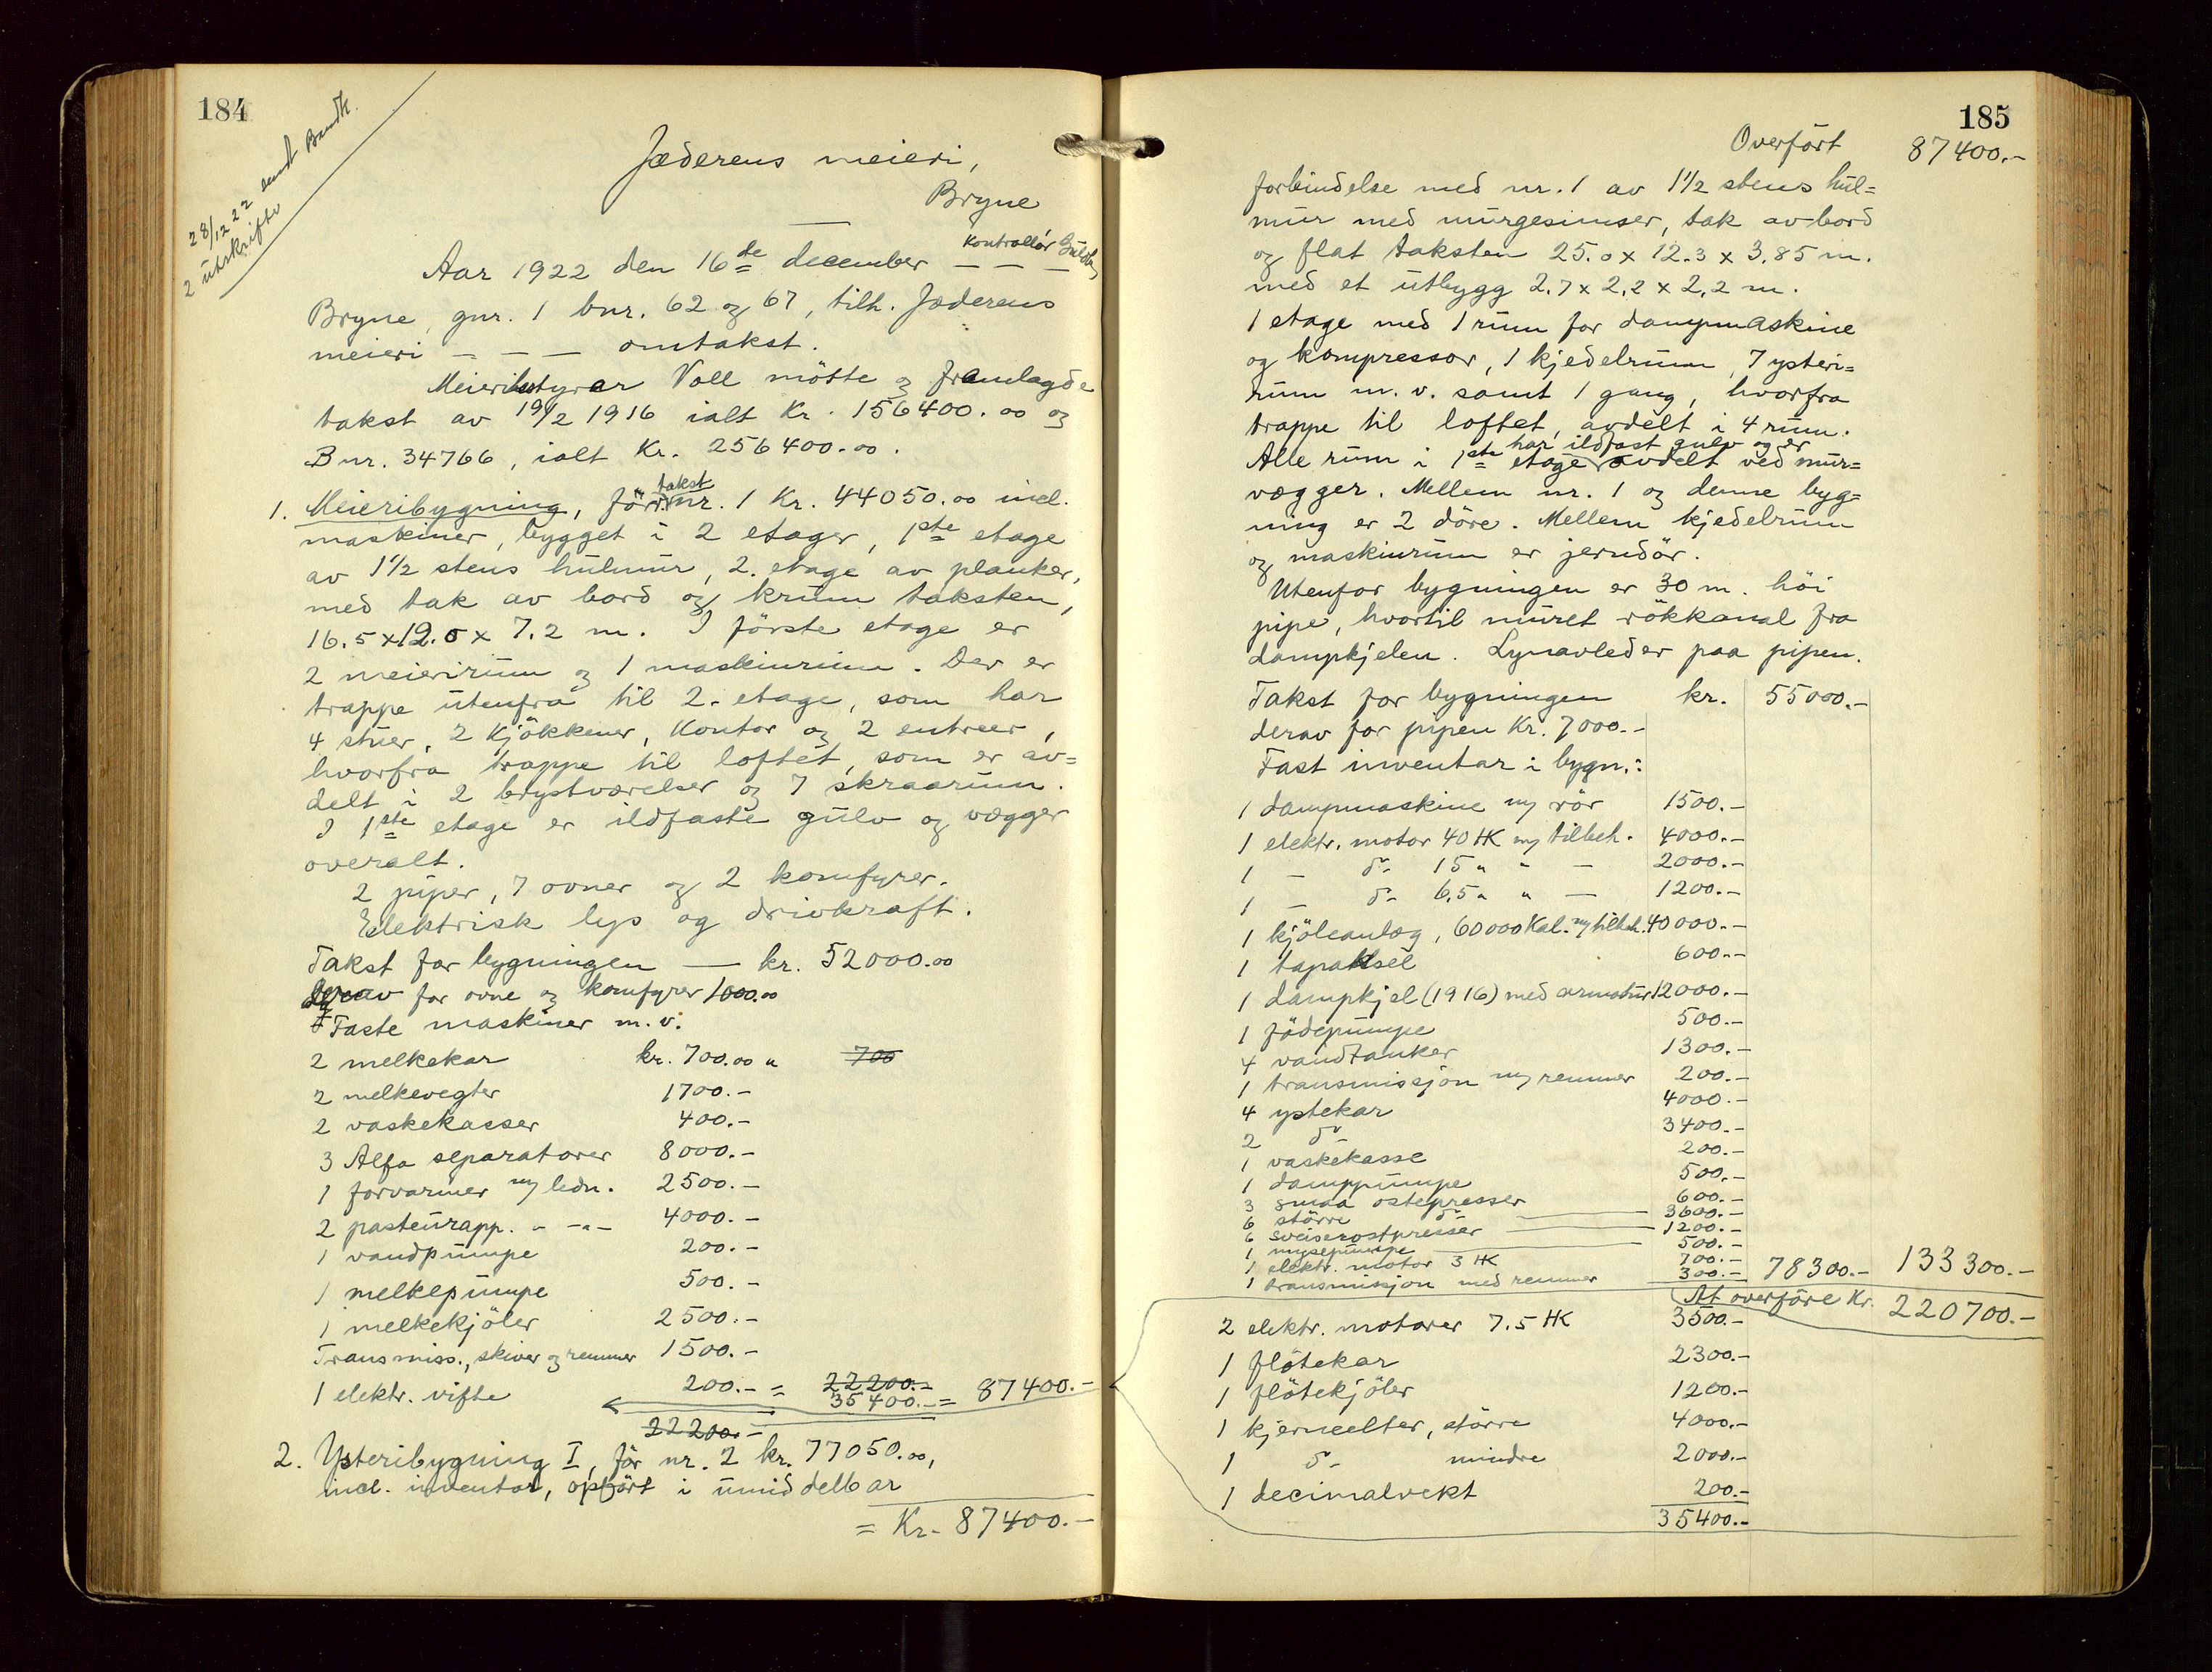 184
28/12 22 sendt Brandk.
2 utskrifter
Jæderens meieri,
Bryne
Aar 1922 den 16de december — — —
Kontrollør
Bryne, gnr. 1 bnr. 62 og 67, tilh. Jæderens
meieri — — — omtakst.
Meieribestyrer Voll mötte og framlagde
takst av 19/2 1916 ialt Kr. 156400.00 og
B nr. 34766, ialt Kr. 256400.00.
1. Meieribygning, för takst nr. 1 Kr. 44050.00 incl.
maskiner, bygget i 2 etager, 1ste etage
av 1 1/2 stens hulmur, 2. etage av planker,
med tak av bord og krum taksten,
16.5 x 12.0 x 7.2 m. I förste etage er
2 meierirum og 1 maskinrum. Der er
trappe utenfra til 2. etage, som har
4 stuer, 2 Kjökkener, Kontor og 2 entreer,
hvorfra trappe til loftet, som er av=
delt i 2 brystværelser og 7 skraarum.
I 1ste etage er ildfaste gulv og vægger
overalt.
2 piper, 7 ovner og 2 komfyrer.
Elektrisk lys og drivkraft.
Takst for bygningen — kr. 52000.00
derav for ovne og komfyrer 1000.00
Faste maskiner m. v.
2 melkekar kr. 700.00 " 700
2 melkevegter 1700.-
2 vaskekasser 400.-
3 Alfa separatorer 8000.-
1 forvarmer m/ ledn. 2500.-
2 pasteurapp. " -"- 4000.-
1 vandpumpe 200.-
1 melkepumpe 500.-
1 melkekjöler 2500.-
Transmiss., skiver og remmer 1500.-
1 elektr. vifte 200.- = 22200.-
35400.- = 87400.-
22200.-
2. Ysteribygning I, för nr. 2 kr. 77050.00,
incl. inventar, opført i umiddelbar
= Kr. 87400.-
185
Overfört 87400.-
forbindelse med nr. 1 av 1 1/2 stens hul=
mur med murgesimser, tak av bord
og flat taksten 25.0 x 12.3 x 3.85 m.
med et utbygg 2.7 x 2.2 x 2,2 m.
1 etage med 1 rum for dampmaskine
og kompressor, 1 kjedelrum, 7 ysteri=
rum m. v. samt 1 gang, hvorfra
trappe til loftet, avdelt i 4 rum.
har ildfast gulv og er
Alle rum i 1ste etage avdelt ved mur=
vægger. Mellem nr. 1 og denne byg=
ning er 2 döre. Mellem kjedelrum
og maskinrum er jerndör.
Utenfor bygningen er 30 m. höi
pipe, hvortil muret rökkanal fra
dampkjelen. Lynavleder paa pipen.
Takst for bygningen kr. 55000.-
derav for pipen Kr. 7000.-
Fast inventar i bygn.:
1 dampmaskine m/ rör 1500.-
1 elektr. motor 40 HK m/ tilbeh. 4000.-
1 — do 15 " " — 2000.-
1 — do 6,5 " " — 1200.-
1 kjöleanlæg, 60000 Kal. m/ tilbeh. 40000.-
1 tapaksel 600.-
1 dampkjel (1916) med armatur 12000.-
1 födepumpe 500.-
4 vandtanker 1300.-
1 transmissjon m/ remmer 200.-
4 ystekar 4000.-
2 do 3400.-
1 vaskekasse 200.-
1 damppumpe 500.-
3 smaa ostepresser 600.-
6 större do 3600.-
6 sveiserostpresser 1200.-
1 mysepumpe 500.-
1 elektr. motor 3 HK 700.-
1 transmissjon med remmer 300.- 78300.- 133300.-
At overföre Kr. 220700.-
2 elektr. motorer 7.5 HK 3500.-
1 flötekar 2300.-
1 flötekjöler 1200.-
1 kjerneelter, större 4000.-
1 do mindre 2000.-
1 decimalvekt 200.-
35400.-